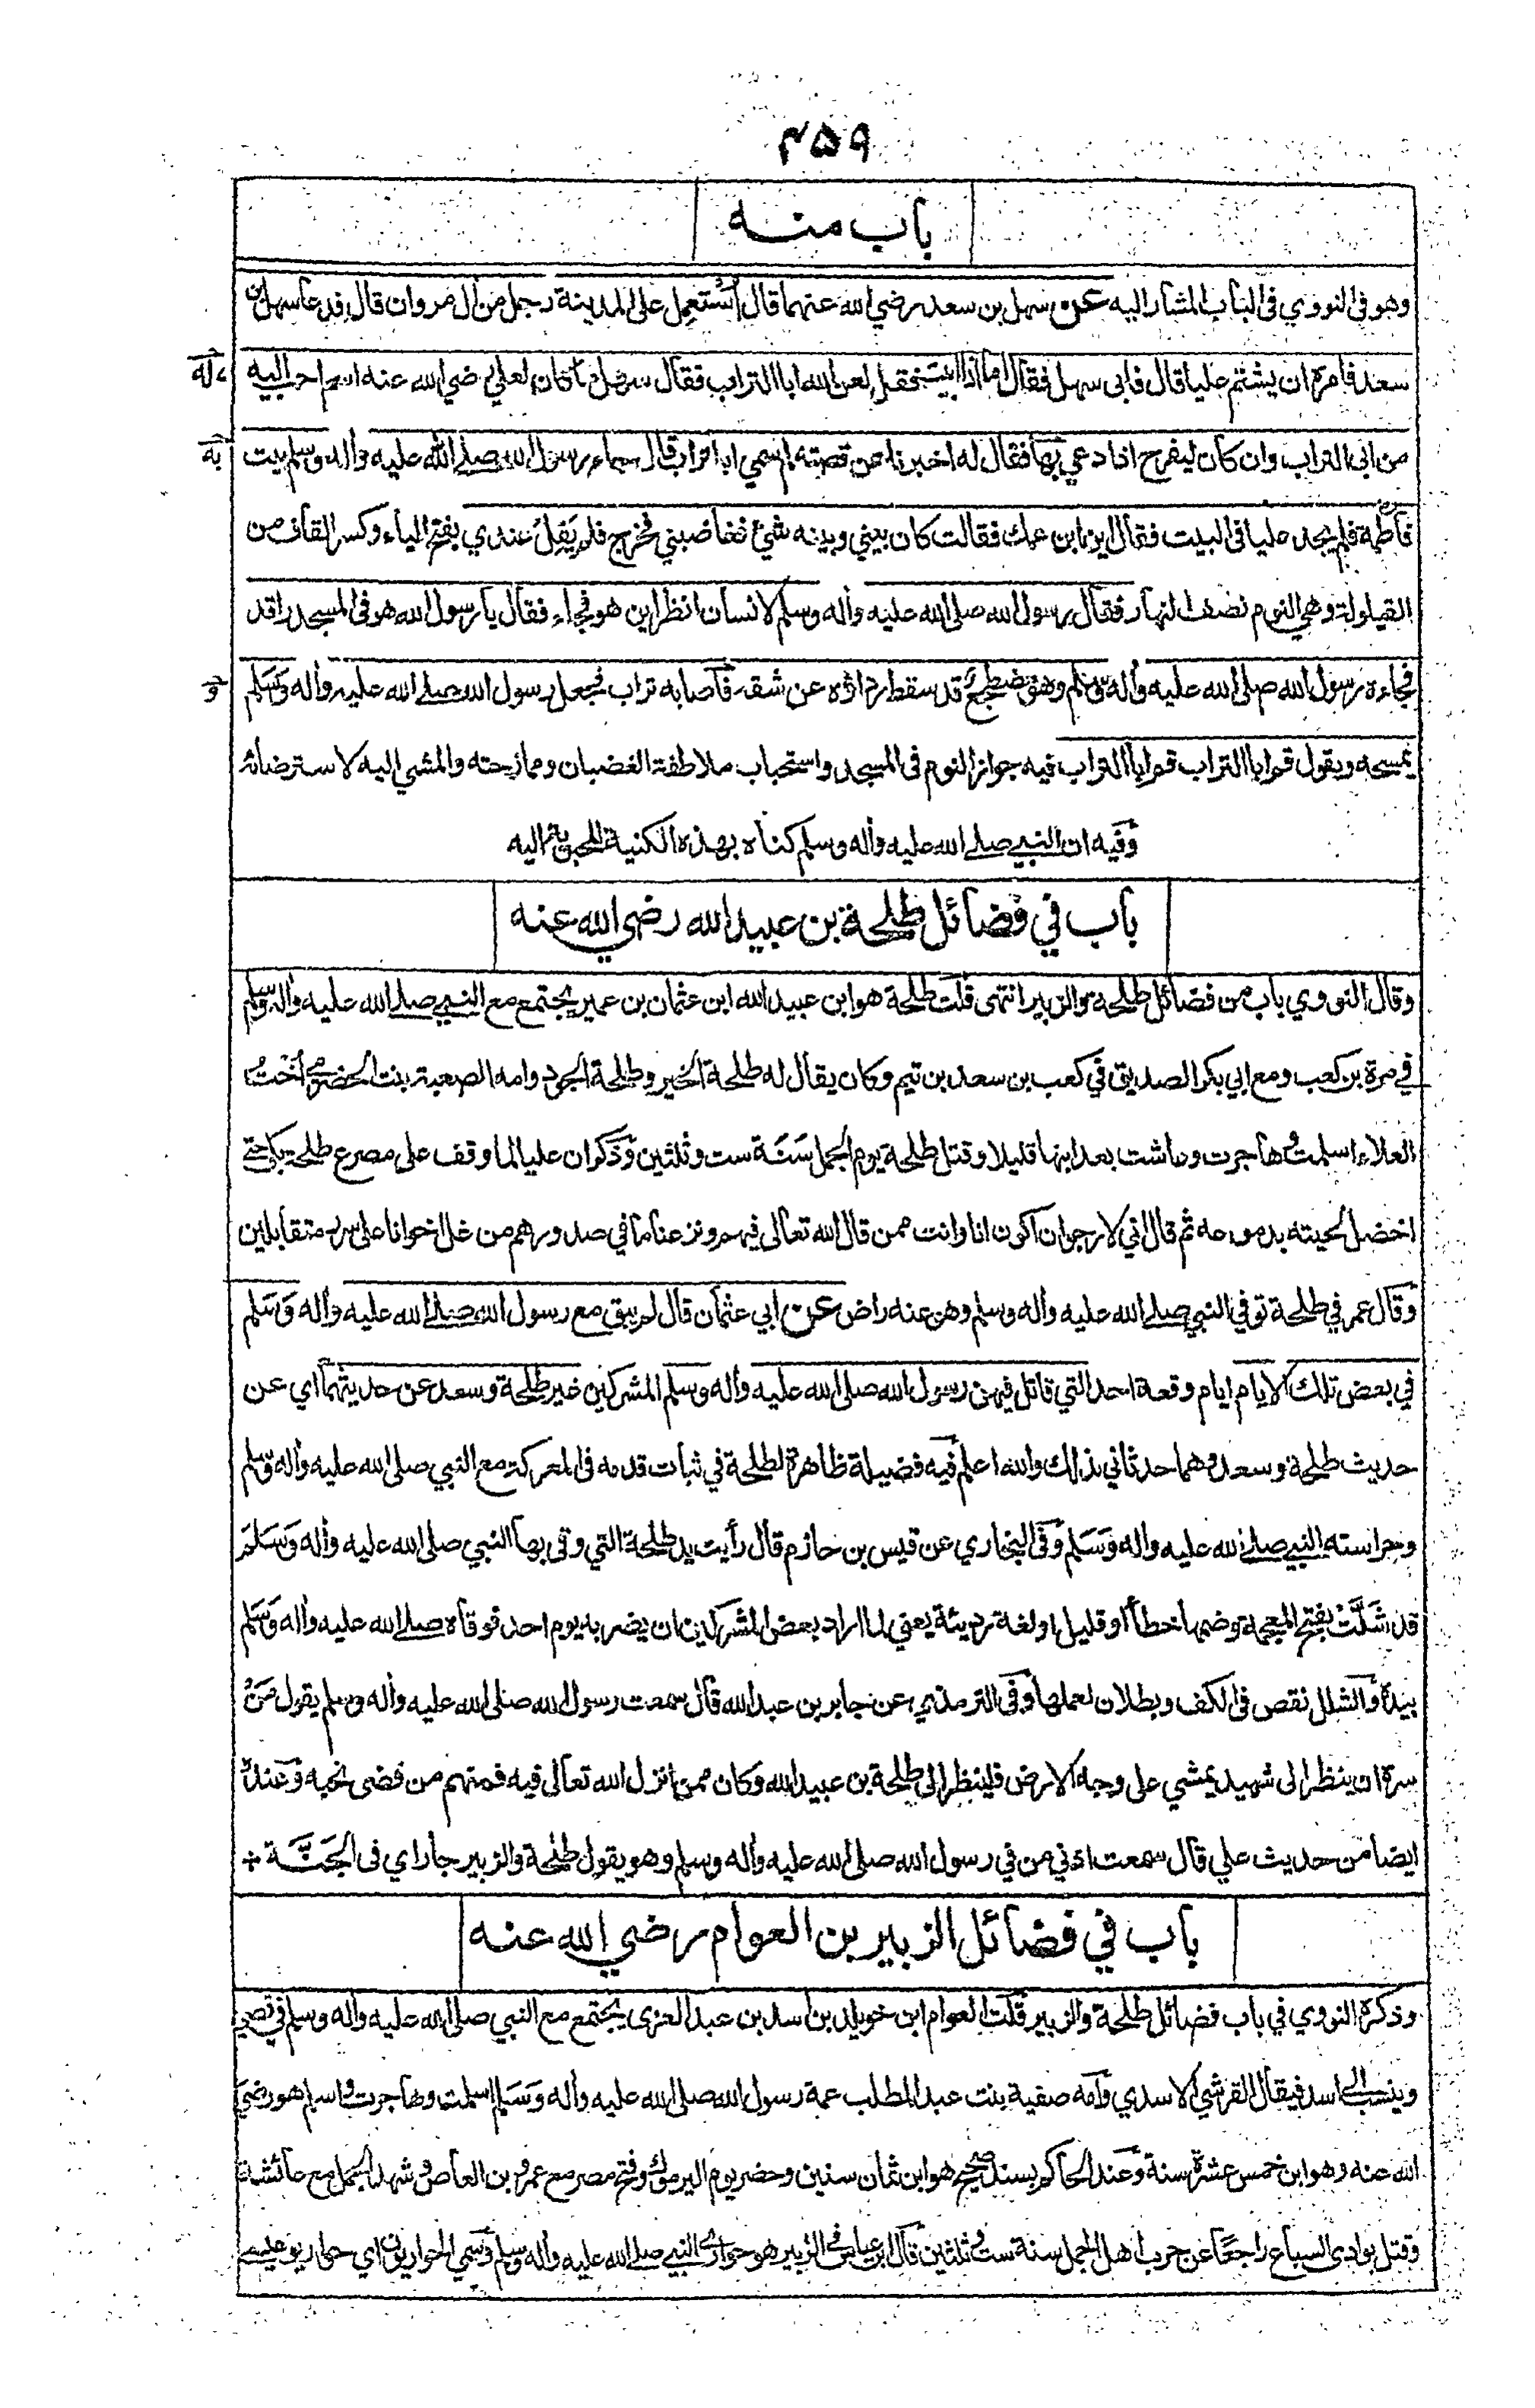 ۴۵۹
باب منه
وهو في النووي في الباب المشار اليه عن سهل بن سعد رضي الله عنهما قال أستعمل على المدينة رجل من ال مروان قال فدعا سهل بن
سعد فامره ان يشتم عليا قال فابى سهل فقال اما اذا ابيت فقل لعن الله ابا التراب فقال سهل ما كان لعلي رضي الله عنه اسم احب اليه
من ابى التراب وان كان ليفرح اذا دعي بها فقال له اخبرنا عن قصته لم سمي ابا تراب قال جاء رسول الله صلى الله عليه واله وسلم بيت
فاطمة فلم يجد عليا في البيت فقال اين ابن عمك فقالت كان بيني وبينه شئ فغاضبني فخرج فلم يقل عندي بفتح الياء وكسر القاف من
القيلولة وهي النوم نصف النهار فقال رسول الله صلى الله عليه واله وسلم لانسان انظر اين هو فجاء فقال يا رسول الله هو في المسجد راقد
فجاءه رسول الله صلى الله عليه واله وسلم وهو مضطجع قد سقط رداؤه عن شقه فاصابه تراب فجعل رسول الله صلى الله عليه واله وسلم
يمسحه ويقول قم ابا التراب قم ابا التراب فيه جواز النوم في المسجد واستحباب ملاطفة الغضبان وممازحته والمشي اليه لاسترضائه
وفيه ان النبي صلى الله عليه واله وسلم كناه بهذه الكنية المحبوبة اليه
باب في فضائل طلحة بن عبيد الله رضي الله عنه
وقال النووي باب من فضائل طلحة والزبير انتهى قلت طلحة هو ابن عبيد الله ابن عثمان بن عمير يجتمع مع النبي صلى الله عليه واله وسلم
في مرة بن كعب ومع ابي بكر الصديق في كعب بن سعد بن تيم وكان يقال له طلحة الخير وطلحة الجود وامه الصعبة بنت الحضرمي أخت
العلاء اسلمت وهاجرت وعاشت بعد ابنها قليلا وقتل طلحة يوم الجمل سنة ست وثلثين وذكر ان عليا لما وقف على مصرع طلحة بكى حتى
اخضل لحيته بدموعه ثم قال اني لارجو ان اكون انا وانت ممن قال الله تعالى فيهم ونزعنا ما في صدورهم من غل اخوانا على سرر متقابلين
وقال عمر في طلحة توفي النبي صلى الله عليه واله وسلم وهو عنه راض عن ابي عثمان قال لم يبق مع رسول الله صلى الله عليه واله وسلم
في بعض تلك الايام ايام وقعة احد التي قاتل فيهن رسول الله صلى الله عليه واله وسلم المشركين غير طلحة وسعد عن حديثهما اي عن
حديث طلحة وسعد وهما حدثاني بذلك والله اعلم فيه فضيلة ظاهرة لطلحة في ثبات قدمه في المعركة مع النبي صلى الله عليه واله وسلم
وحراسته النبي صلى الله عليه واله وسلم وفي البخاري عن قيس بن حازم قال رأيت يد طلحة التي وقى بها النبي صلى الله عليه واله وسلم
قد شلّت بفتح المعجمة وضمها خطأ او قليل او لغة رديئة يعني لما اراد بعض المشركين ان يضربه يوم احد فوقاه صلى الله عليه واله وسلم
بيده والشلل نقص في الكف وبطلان لعملها وفي الترمذي عن جابر بن عبد الله قال سمعت رسول الله صلى الله عليه واله وسلم يقول من
سره ان ينظر الى شهيد يمشي على وجه الارض فلينظر الى طلحة بن عبيد الله وكان ممن انزل الله تعالى فيه فمنهم من قضى نحبه وعنده
ايضا من حديث علي قال سمعت اذني من في رسول الله صلى الله عليه واله وسلم وهو يقول طلحة والزبير جاراي في الجنة
باب في فضائل الزبير بن العوام رضي الله عنه
وذكره النووي في باب فضائل طلحة والزبير قلت العوام ابن خويلد بن اسد بن عبد العزى يجتمع مع النبي صلى الله عليه واله وسلم في قصي
وينسب الى اسد فيقال القرشي الاسدي وامه صفية بنت عبد المطلب عمة رسول الله صلى الله عليه واله وسلم اسلمت وهاجرت واسلم هو رضي
الله عنه وهو ابن خمس عشرة سنة وعند الحاكم بسند صحيح هو ابن ثمان سنين وحضر يوم اليرموك وفتح مصر مع عمرو بن العاص وشهد الجمل مع عائشة
وقتل بوادي السباع راجعا عن حرب اهل الجمل سنة ست وثلثين قال ابن عباس في الزبير هو حواري النبي صلى الله عليه واله وسلم وسمي الحواريون اي حواريو عليه